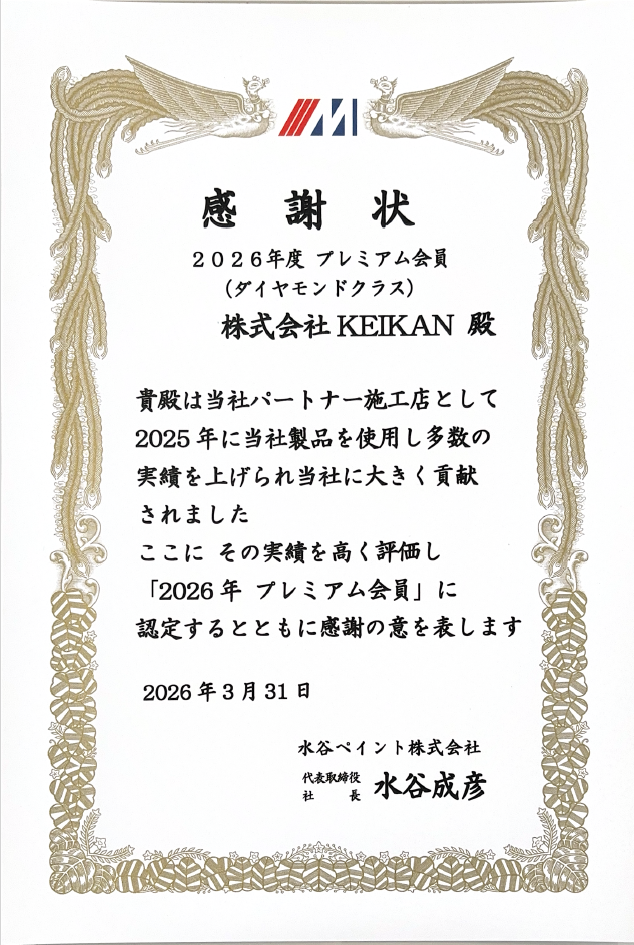 感謝状
2026年度 プレミアム会員
(ダイヤモンドクラス)
株式会社 KEIKAN 殿
貴殿は当社パートナー施工店として
2025 年に当社製品を使用し多数の
実績を上げられ当社に大きく貢献
されました
ここに その実績を高く評価し
「2026 年 プレミアム会員」に
認定するとともに感謝の意を表します
2026 年 3 月 31 日
水谷ペイント株式会社
代表取締役
社長 水谷成彦